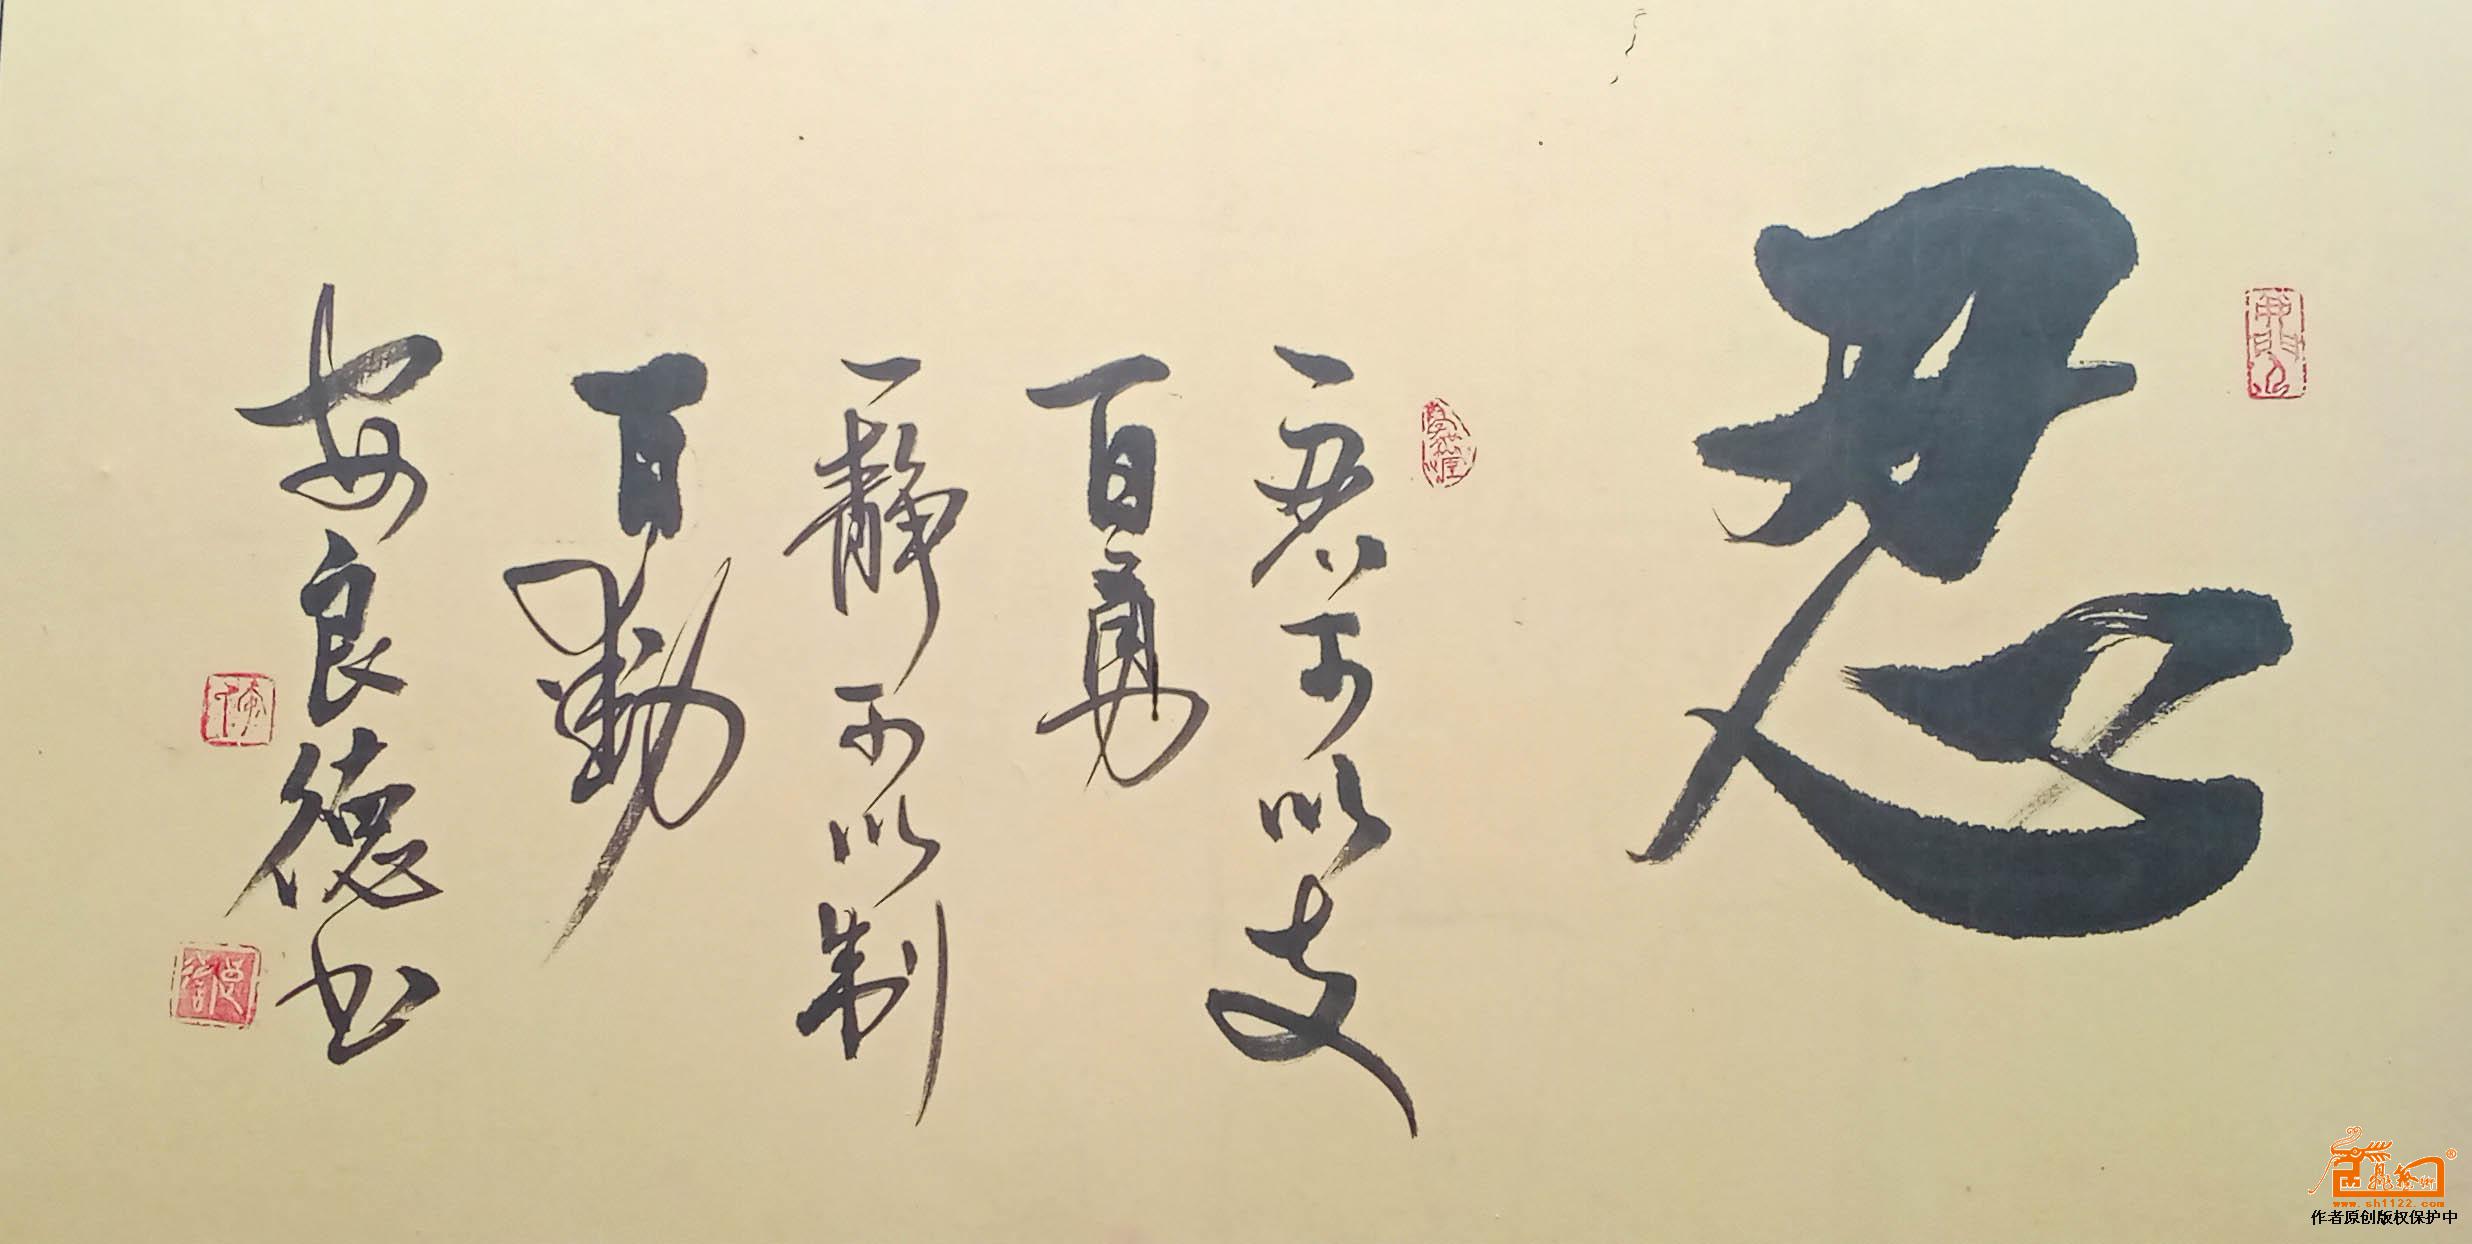 忍
一忍可以支
百勇
一静可以制
百動
安良德书
www.sh1122.com
作者原创版权保护中